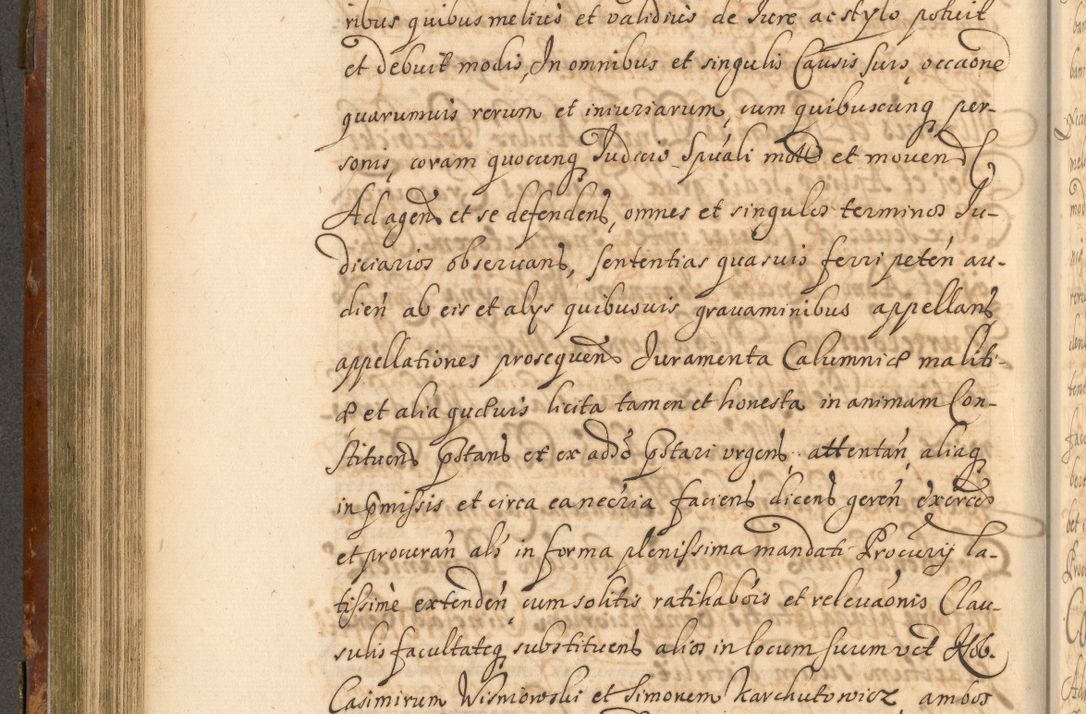 ribus quibus melius et validius de Iure ac stylo potuit
et debuit modis, In omnibus et singulis Causis suis, occaōne
quarumuis rerum et iniuriarum, cum quibuscunq, per-
sonis, coram quocunq, Iudicio Spūali mot et movend
Ad agend, et se defendend, omnes et singulos terminos Iu-
diciarios observand, sententias quasvis ferri petén au-
dién ab eis et alys quibusvis gravaminibus appelland
appellationes prosequend Iuramenta Calumniæ maliti-
æ et alia quævis licita tamen et honesta in animam Con-
stituend pstand et ex addō pstari urgend, attentań, aliaq
in pmissis et circa ea necria faciend dicend gerén exercend
et procurań ali in forma plenissima mandati Procūrij la-
tissimè extendén, cum solitis ratihabōis et relevaōnis Clau-
sulis facultateq substituend alios in locum suum vct Nob.
Casimirum Wisniowski et Simonem Karchutowicz ambos